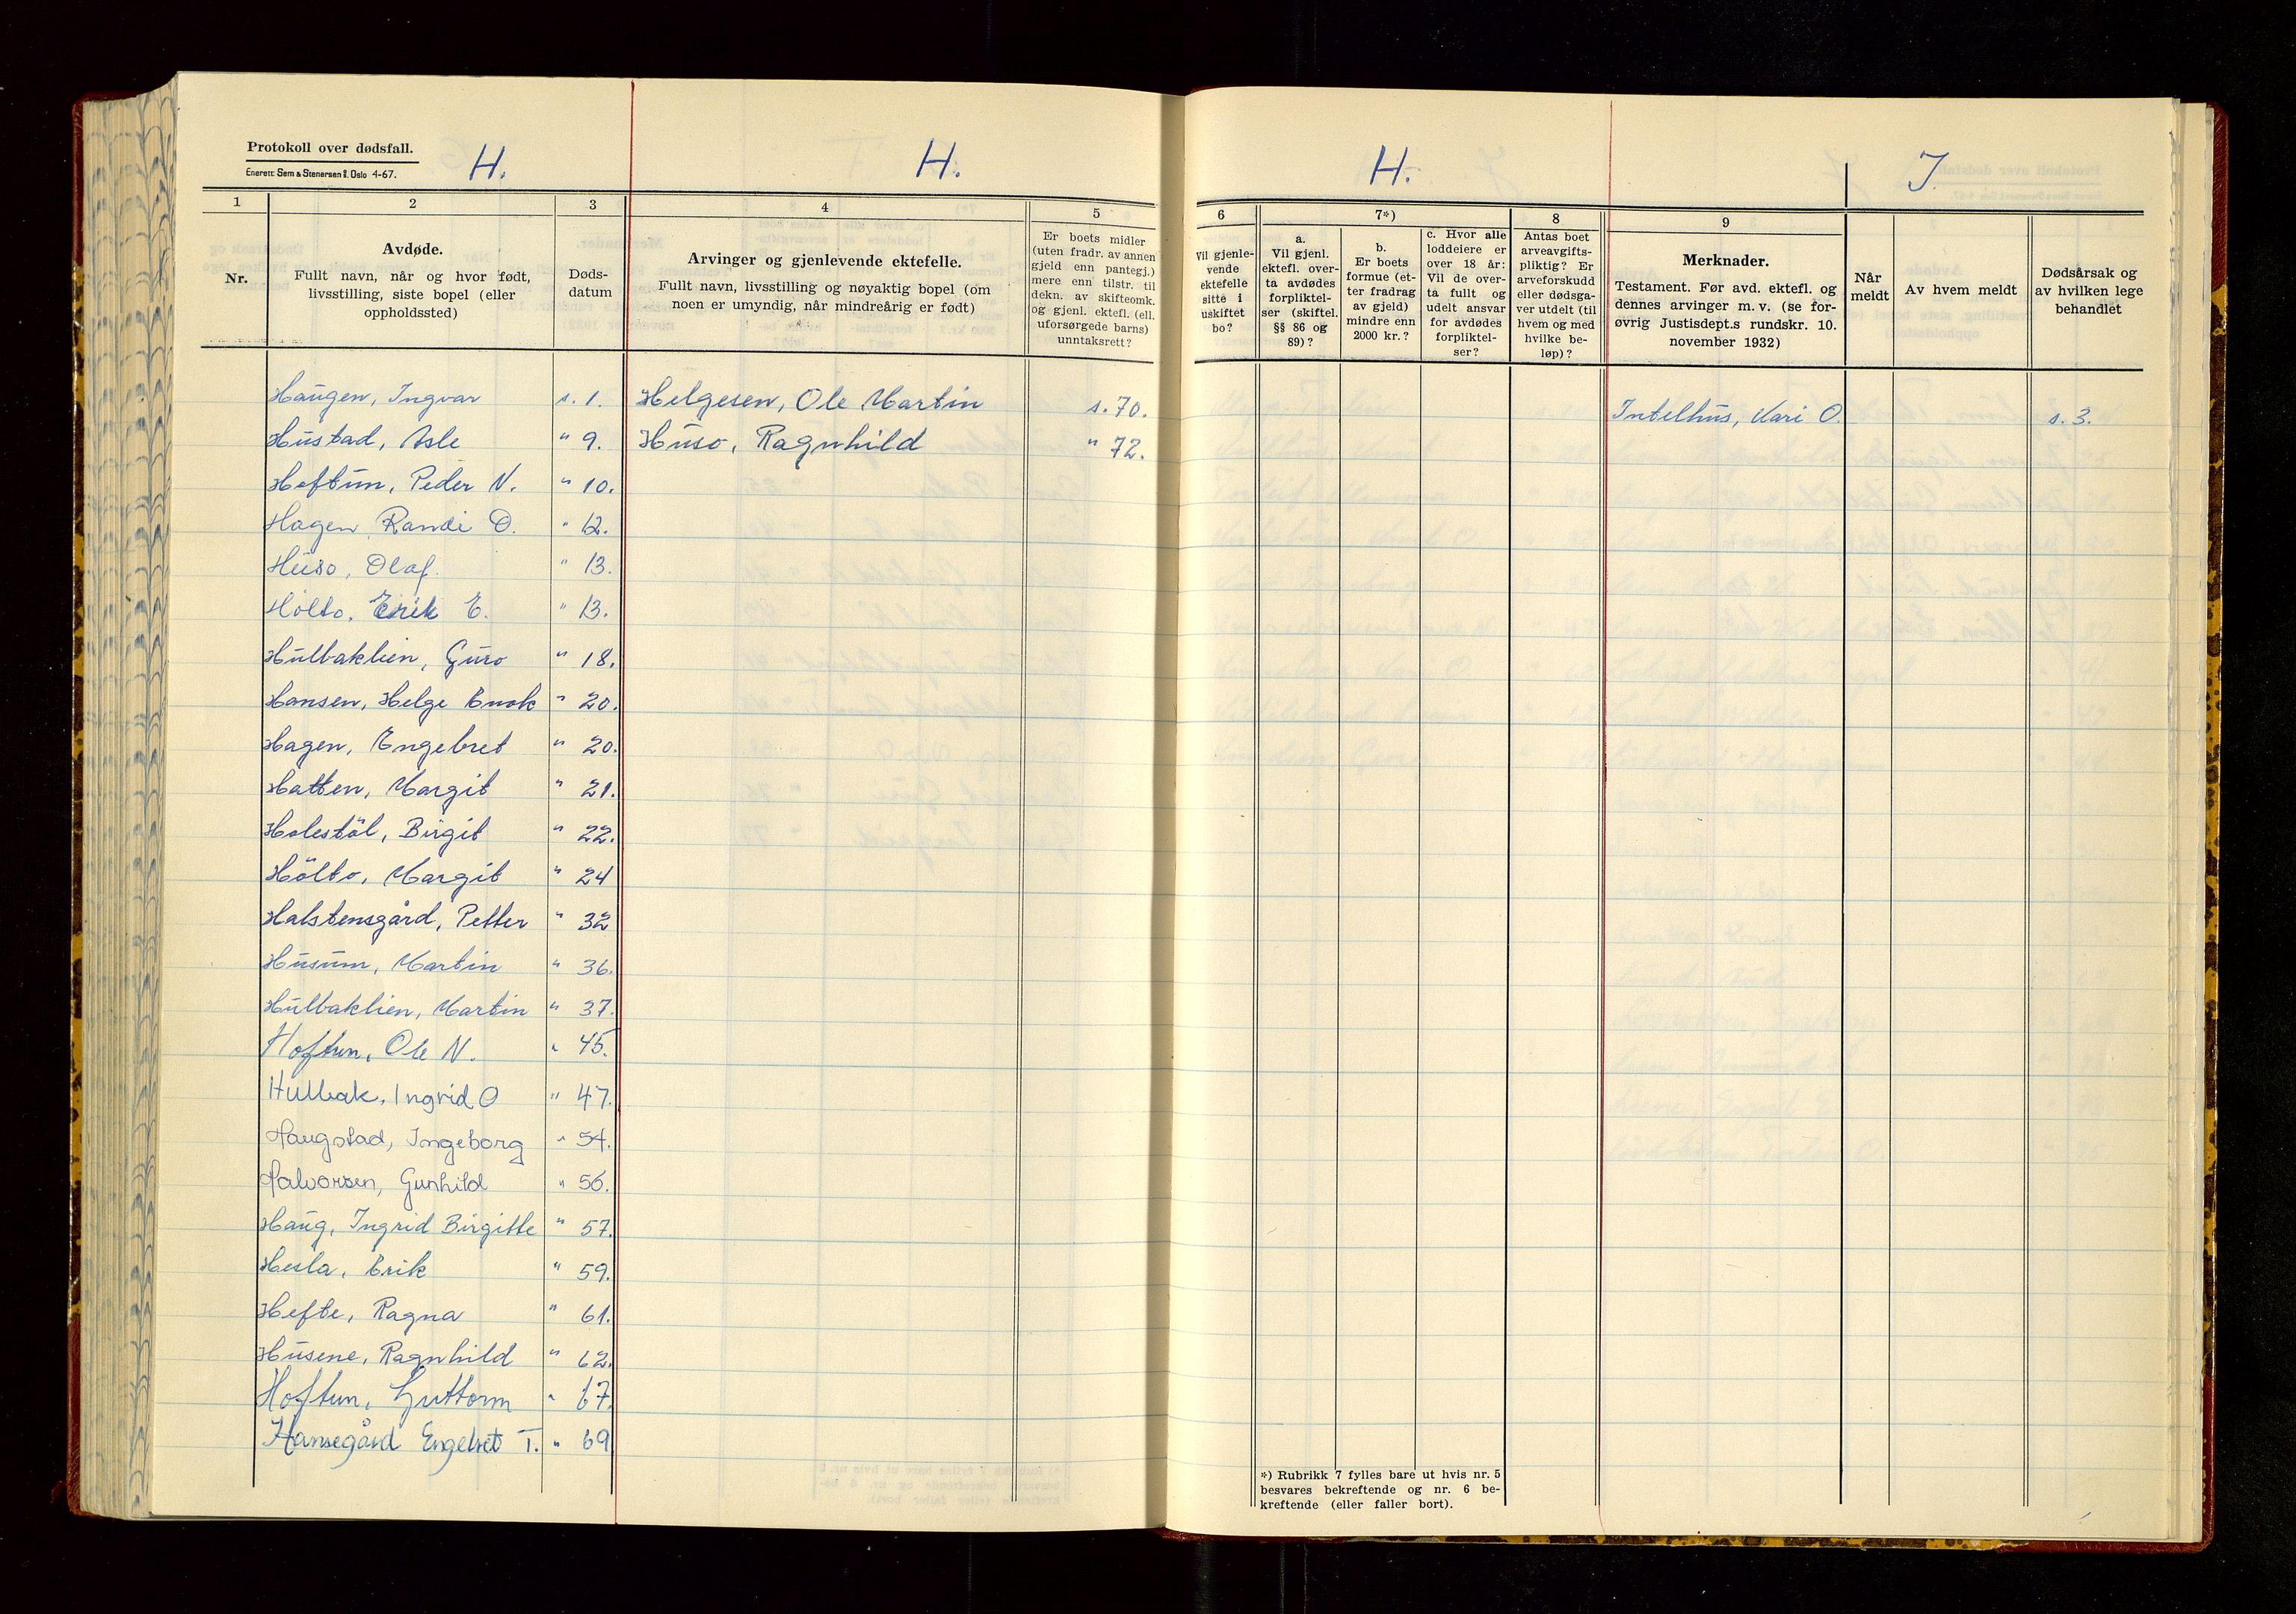 Protokoll over dødsfall.
Enerett: Sem & Stenersen A/S. Oslo 4-67.
H.
H.
1
2
3
4
5
Nr.
Avdøde.
Fullt navn, når og hvor født,
livsstilling, siste bopel (eller
oppholdssted)
Døds-
datum
Arvinger og gjenlevende ektefelle.
Fullt navn, livsstilling og nøyaktig bopel (om
noen er umyndig, når mindreårig er født)
Er boets midler
(uten fradr. av annen
gjeld enn pantegj.)
mere enn tilstr. til
dekn. av skifteomk.
og gjenl. ektefl. (ell.
uforsørgede barns)
unntaksrett?
Haugen, Ingvar s. 1.
Hustad, Asle " 9.
Hoftun, Peder N. " 10.
Hagen, Randi O. " 12.
Huso, Olaf. " 13.
Holto, Erik E. " 13.
Hulbaklien, Guro " 18.
Hansen, Helge Enok " 20.
Hagen, Engebret " 20.
Hatten, Margit " 21.
Holestöl, Birgit " 22.
Hölto, Margit " 24
Halstensgård, Petter " 32
Husum, Martin " 36.
Hulbaklien, Martin " 37.
Hoftun, Ole N. " 45.
Hulbak, Ingrid O " 47.
Haugstad, Ingeborg " 54.
Halvorsen, Gunhild " 56.
Haug, Ingrid Birgitte " 57.
Hesla, Erik " 59.
Hefte, Ragna " 61.
Husene, Ragnhild " 62.
Hoftun, Guttorm " 67.
Hansegård Engebret T. " 69
Helgesen, Ole Martin s. 70.
Huso, Ragnhild " 72.
H.
J.
6
7*)
8
9
Vil gjenle-
vende
ektefelle
sitte i
uskiftet
bo?
a.
Vil gjenl.
ektefl. over-
ta avdødes
forpliktel-
ser (skiftel.
§§ 86 og
89)?
b.
Er boets
formue (et-
ter fradrag
av gjeld)
mindre enn
2000 kr.?
c. Hvor alle
loddeiere er
over 18 år:
Vil de over-
ta fullt og
udelt ansvar
for avdødes
forpliktel-
ser?
Antas boet
arveavgifts-
pliktig? Er
arveforskudd
eller dødsga-
ver utdelt (til
hvem og med
hvilke be-
løp)?
Merknader.
Testament. Før avd. ektefl. og
dennes arvinger m. v. (se for-
øvrig Justisdept.s rundskr. 10.
november 1932)
Når
meldt
Av hvem meldt
Dødsårsak og
av hvilken lege
behandlet
Intelhus, Kari O. s. 3.
*) Rubrikk 7 fylles bare ut hvis nr. 5
besvares bekreftende og nr. 6 be-
kreftende (eller faller bort).